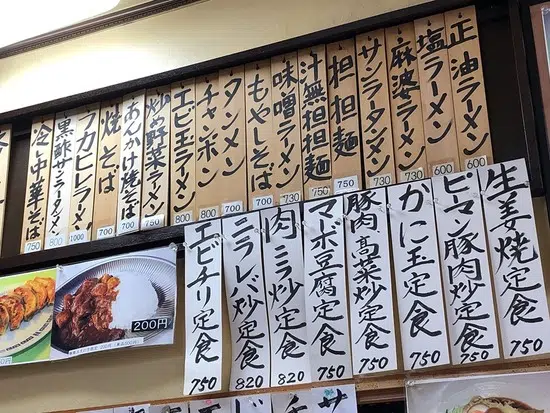 正油ラーメン 600
塩ラーメン 600
麻婆ラーメン 730
サンラータンメン 730
担担麺 750
汁無担担麺 750
味噌ラーメン 730
もやしそば 700
タンメン 700
チャンポン 800
エビ玉ラーメン 800
炒め野菜ラーメン 750
あんかけ焼そば 700
焼そば
フカヒレラーメン 1000
黒酢サンラータンメン 800
冷し中華そば 750
生姜焼定食 750
ピーマン豚肉炒定食 750
かに玉定食 750
豚肉高菜炒定食 750
マーボ豆腐定食 750
肉ニラ炒定食 820
ニラレバ炒定食 820
エビチリ定食 750
200円